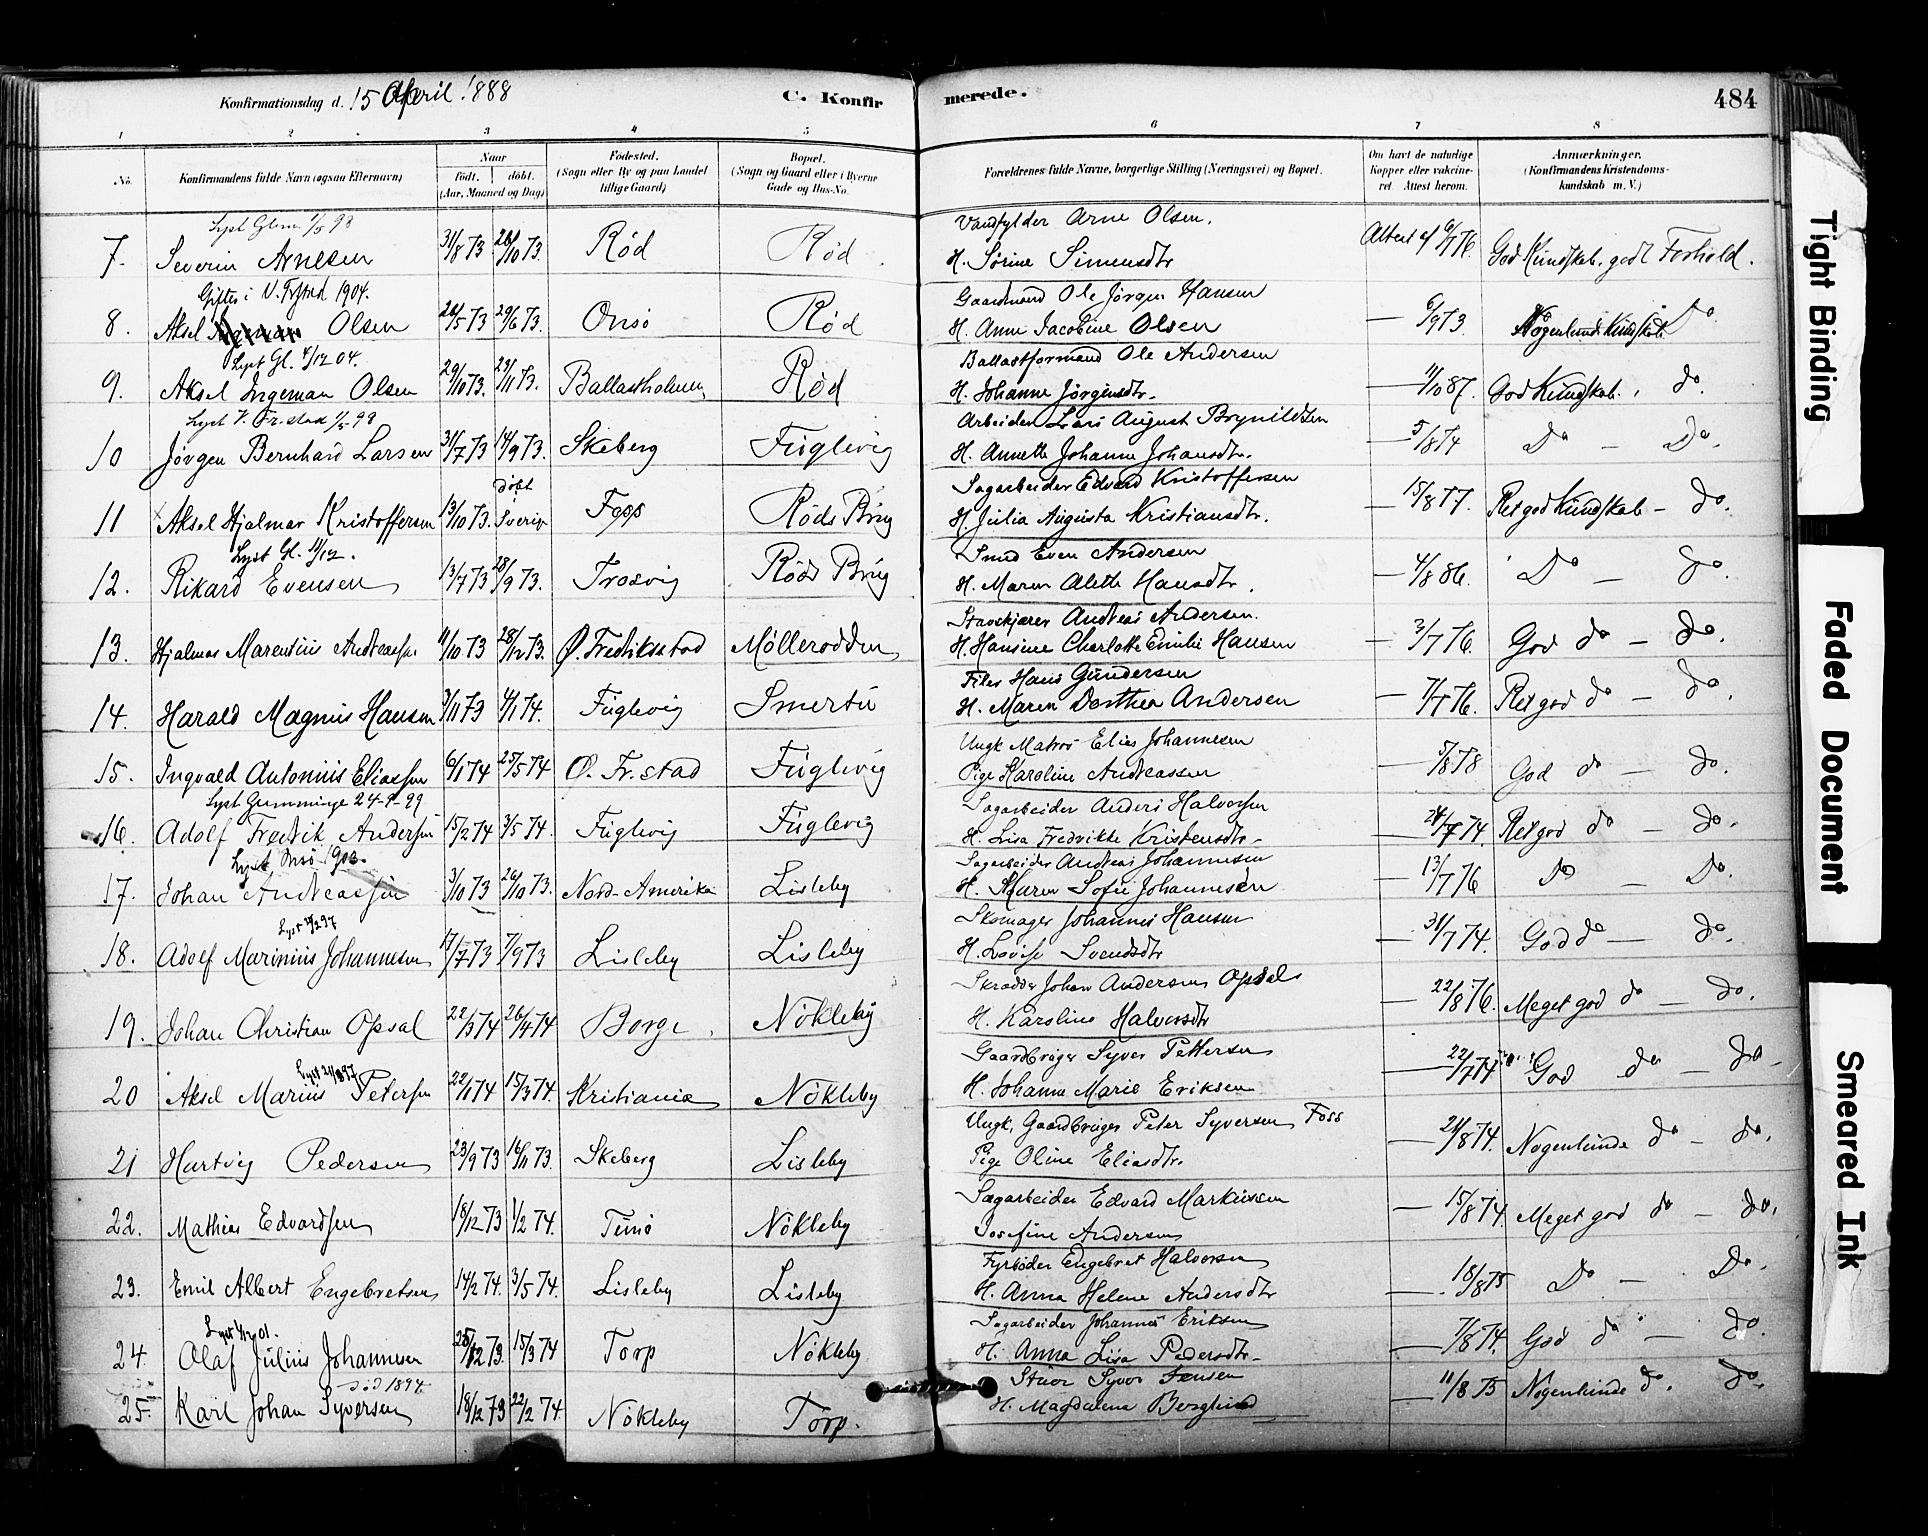 Konfirmationsdag d. 15 April 1888 C. Konfirmerede. 484
1 2 3 4 5 6 7 8
No. Konfirmandens fulde Navn (ogsaa Efternavn) Naar født. døbt. (Aar, Maaned og Dag) Fødested. (Sogn eller By og paa Landet tillige Gaard) Bopæl. (Sogn og Gaard eller i Byerne Gade og Hus-No. Forældrenes fulde Navne, borgerlige Stilling (Næringsvei) og Bopæl. Om havt de naturlige Kopper eller vaccineret. Attest herom. Anmærkninger. (Konfirmandens Kristendomskundskab m. V.)
Lyst Glem. 93 Vandfylder Arne Olsen.
7. Severin Arnesen 31/8 73 26/10 73. Rød Rød H. Sørine Simensdtr 6/7 76. God Kundskab, godt Forhold.
Giftes i V. Frstad 1904. Gaardmand Ole Jørgen Hansen
8. Aksel Olsen 24/5 73 29/6 73. Onsø Rød H. Anne Jacobine Olsen — 6/9 73. Nogenlund Kundskab. Do
Lyst Gl. 4/12 04. Ballastformand Ole Andersen
9. Aksel Ingeman Olsen 20/10 73. 23/11 73. Ballastholmen Rød H. Johanne Jørgensdtr. — 11/10 87. God Kundskab. do.
Lyst V. Fr.stad 99 Arbeider Lars August Brynildsen
10 Jørgen Bernhard Larsen 31/7 73 14/9 73. Skeberg Fuglevig H. Annette Johanne Johansdtr. — 5/8 74 Do — Do.
døbt Sagarbeider Edvard Kristoffersen
11 Aksel Hjalmar Kristoffersen 13/10 73. i Sverige Foss Røds Brug H. Julia Augusta Kristiansdtr. — 15/8 77. Ret god Kundskab — do.
Lyst Gl. 11/12. Smed Even Andersen
12. Rikard Evensen 13/7 73 28/9 73. Trosvig Røds Brug H. Maren Alette Hansdtr. — 4/8 86. Do — do.
Stavskjærer Andreas Andersen.
13. Hjalmar Marentius Andreassen 11/10 73 28/12 73. Ø. Fredriksstad Møllerodden H. Hansine Charlotte Emilie Hansen — 3/7 76. God do — do.
Filer Hans Gundersen
14. Harald Magnus Hansen 3/11 73 4/1 74. Fuglevig Smertu H. Maren Dorthea Andersen — 7/7 76. Ret god do — do.
Ungk Matros Elias Johannesen
15. Ingvald Antonius Eliassen 6/1 74 25/5 74 Ø. Fr.stad Fuglevig Pige Karoline Andreassen — 5/8 78 God do — do.
Lyst Gumminge 24-9-99 Sagarbeider Anders Halvorsen
16. Adolf Fredrik Andersen 15/2 74 3/5 74. Fuglevig Fuglevig H. Lisa Fredrikke Kristensdtr. — 24/7 74. Ret god do — do.
Lyst Onsø 1902. Sagarbeider Andreas Johannesen
17. Johan Andreassen 3/10 73 26/10 73. Nord-Amerika Lisleby H. Karen Sofie Johannesen — 13/7 76 Do — Do.
Lyst 97 Skomager Johannes Hansen
18. Adolf Marinius Johannesen 17/7 73 7/9 73 Lisleby Lisleby H. Lovise Svendsdtr — 31/7 74. God do — do.
Skrædder Johan Andersen Opsal
19. Johan Christian Opsal 22/3 74 26/4 74 Borge Nökleby H. Karoline Halvorsdtr — 22/8 76. Meget god do — do.
Lyst 97 Gaardbruger Syver Pettersen
20 Aksel Marius Petersen 22/1 74 15/3 74. Kristiania Nökleby H. Johanne Marie Eriksen — 22/7 74 God do — do.
Ungk. Gaardbruger Peter Syversen Foss
21 Hartvig Pedersen 23/9 73 16/11 73. Skeberg Lisleby Pige Oline Eliasdtr. — 24/8 74. Nogenlunde do — do.
Sagarbeider Edvard Markussen
22. Mathias Edvardsen 18/12 73 1/2 74. Tunø Nökleby Josefine Andersen — 15/8 74. Meget god do — do.
Fyrbøder Engebret Halvorsen
23. Emil Albert Engebretsen 14/2 74. 3/5 74. Lisleby Lisleby H. Anna Helene Andersdtr — 18/8 75 Do — Do.
Lyst 4/12 01. Sagarbeider Johannes Eriksen
24. Olaf Julius Johannesen 25/12 73. 15/3 74 Torp Nökleby H. Anna Lisa Pedersdtr. — 7/8 74. God do — do.
død 1894 Stuer Syver Jensen
25. Karl Johan Syversen 18/12 73 22/2 74. Nökleby Torp. H. Magdalena Berglund — 11/8 75 Nogenlunde do. do.
Tight Binding
Faded Document
Smeared Ink